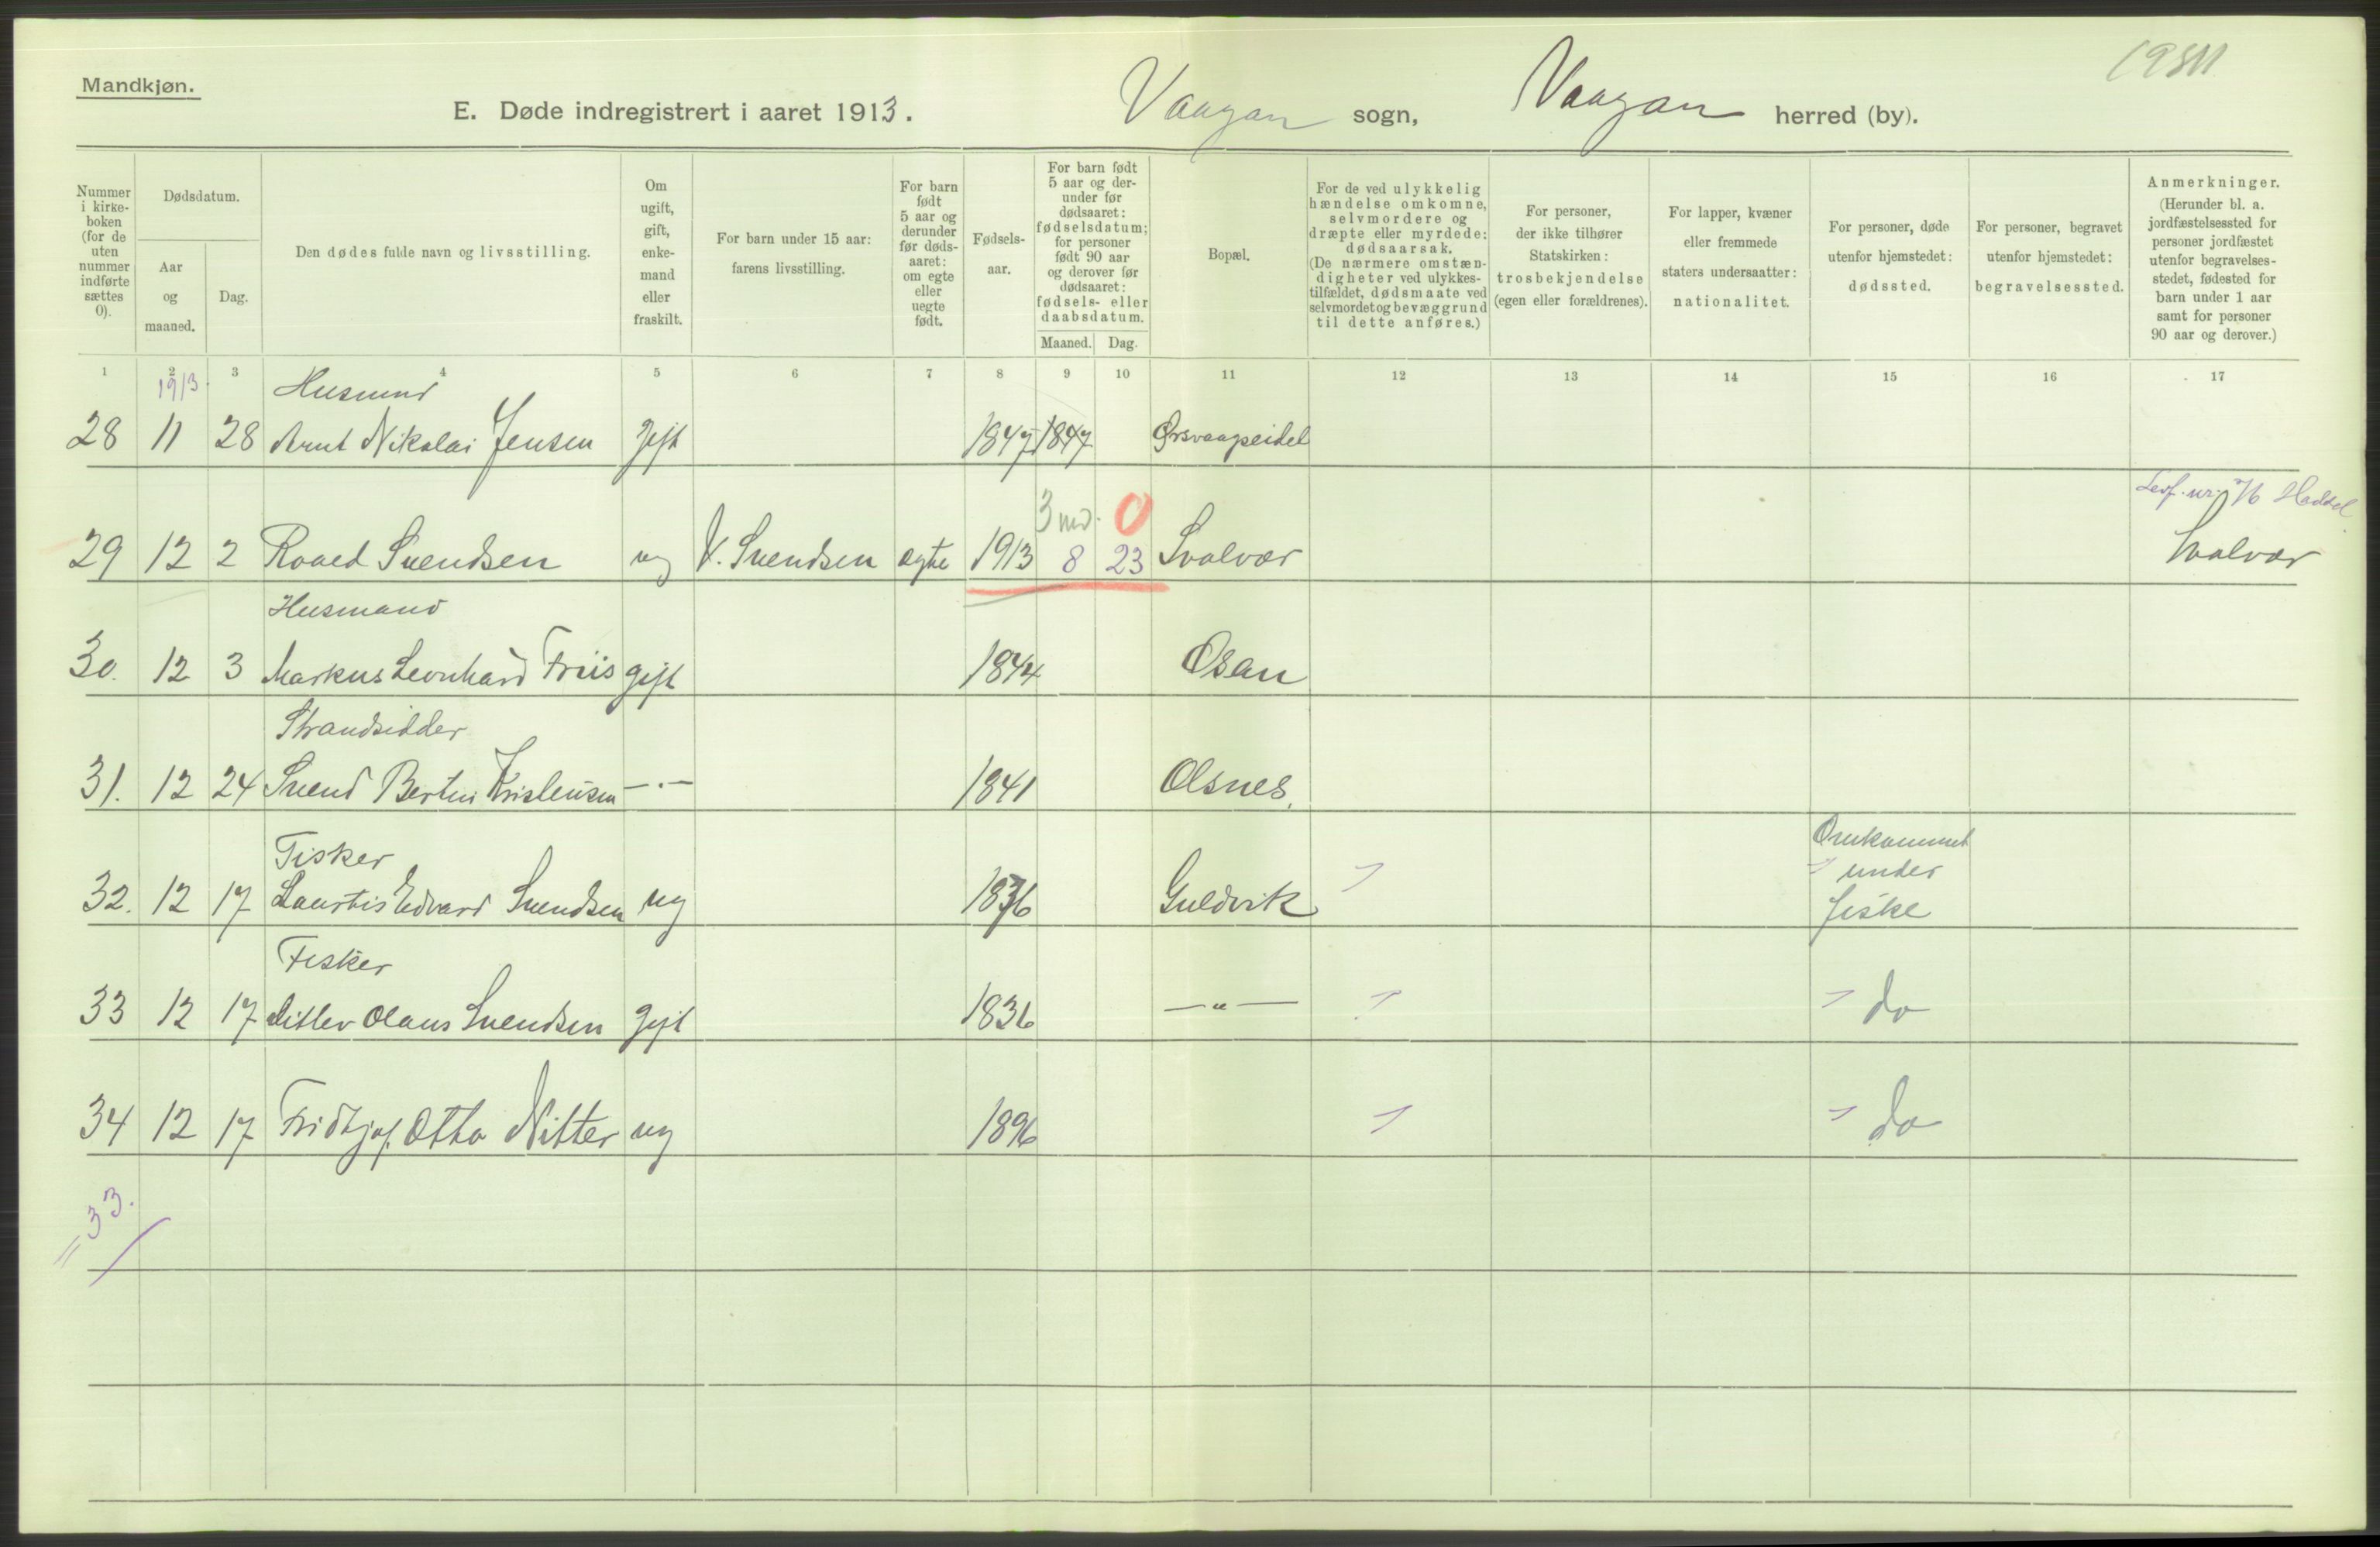 Mandkjøn.
1981
E. Døde indregistrert i aaret 1913. Vaagan sogn, Vaagan herred (by).
Nummer i kirke-boken (for de uten nummer indførte sættes 0).
Dødsdatum.
Aar og maaned.
Dag.
Den dødes fulde navn og livsstilling.
Om ugift, gift, enke-mand eller fraskilt.
For barn under 15 aar: farens livsstilling.
For barn født 5 aar og derunder før døds-aaret: om egte eller uegte født.
Fødsels-aar.
For barn født 5 aar og der-under før dødsaaret: fødselsdatum; for personer født 90 aar og derover før dødsaaret: fødsels- eller daabsdatum.
Maaned. Dag.
Bopæl.
For de ved ulykkelig hændelse omkomne, selvmordere og dræpte eller myrdede: dødsaarsak. (De nærmere omstæn-digheter ved ulykkes-tilfældet, dødsmaate ved selvmordet og bevæggrund til dette anføres.)
For personer, der ikke tilhører Statskirken: trosbekjendelse (egen eller forældrenes).
For lapper, kvæner eller fremmede staters undersaatter: nationalitet.
For personer, døde utenfor hjemstedet: dødssted.
For personer, begravet utenfor hjemstedet: begravelsessted.
Anmerkninger. (Herunder bl. a. jordfæstelsessted for personer jordfæstet utenfor begravelses-stedet, fødested for barn under 1 aar samt for personer 90 aar og derover.)
1 2 3 4 5 6 7 8 9 10 11 12 13 14 15 16 17
1913 Husmand
28 11 28 Arnt Nikolai Jensen gift 1847 1847 Ørsvaagseidet
3 md. 0 Hadsel
29 12 2 Roald Svendsen ug V. Svendsen egte 1913 8 23 Svolvær Svolvær
Husmand
30. 12 3 Markus Leonhard Friis gift 1844 Osan
Strandsidder
31. 12 24 Svend Bertin Kristensen —.— 1841 Olsnes.
Fisker Omkommet
32. 12 17 Edvard Svendsen ug 1876 Guldvik under fiske
Fisker
33 12 17 Ditlev Olaus Svendsen gift 1836 —"— do
34 12 17 Fridtjof Otto Nitter ug 1896 do
= 33.